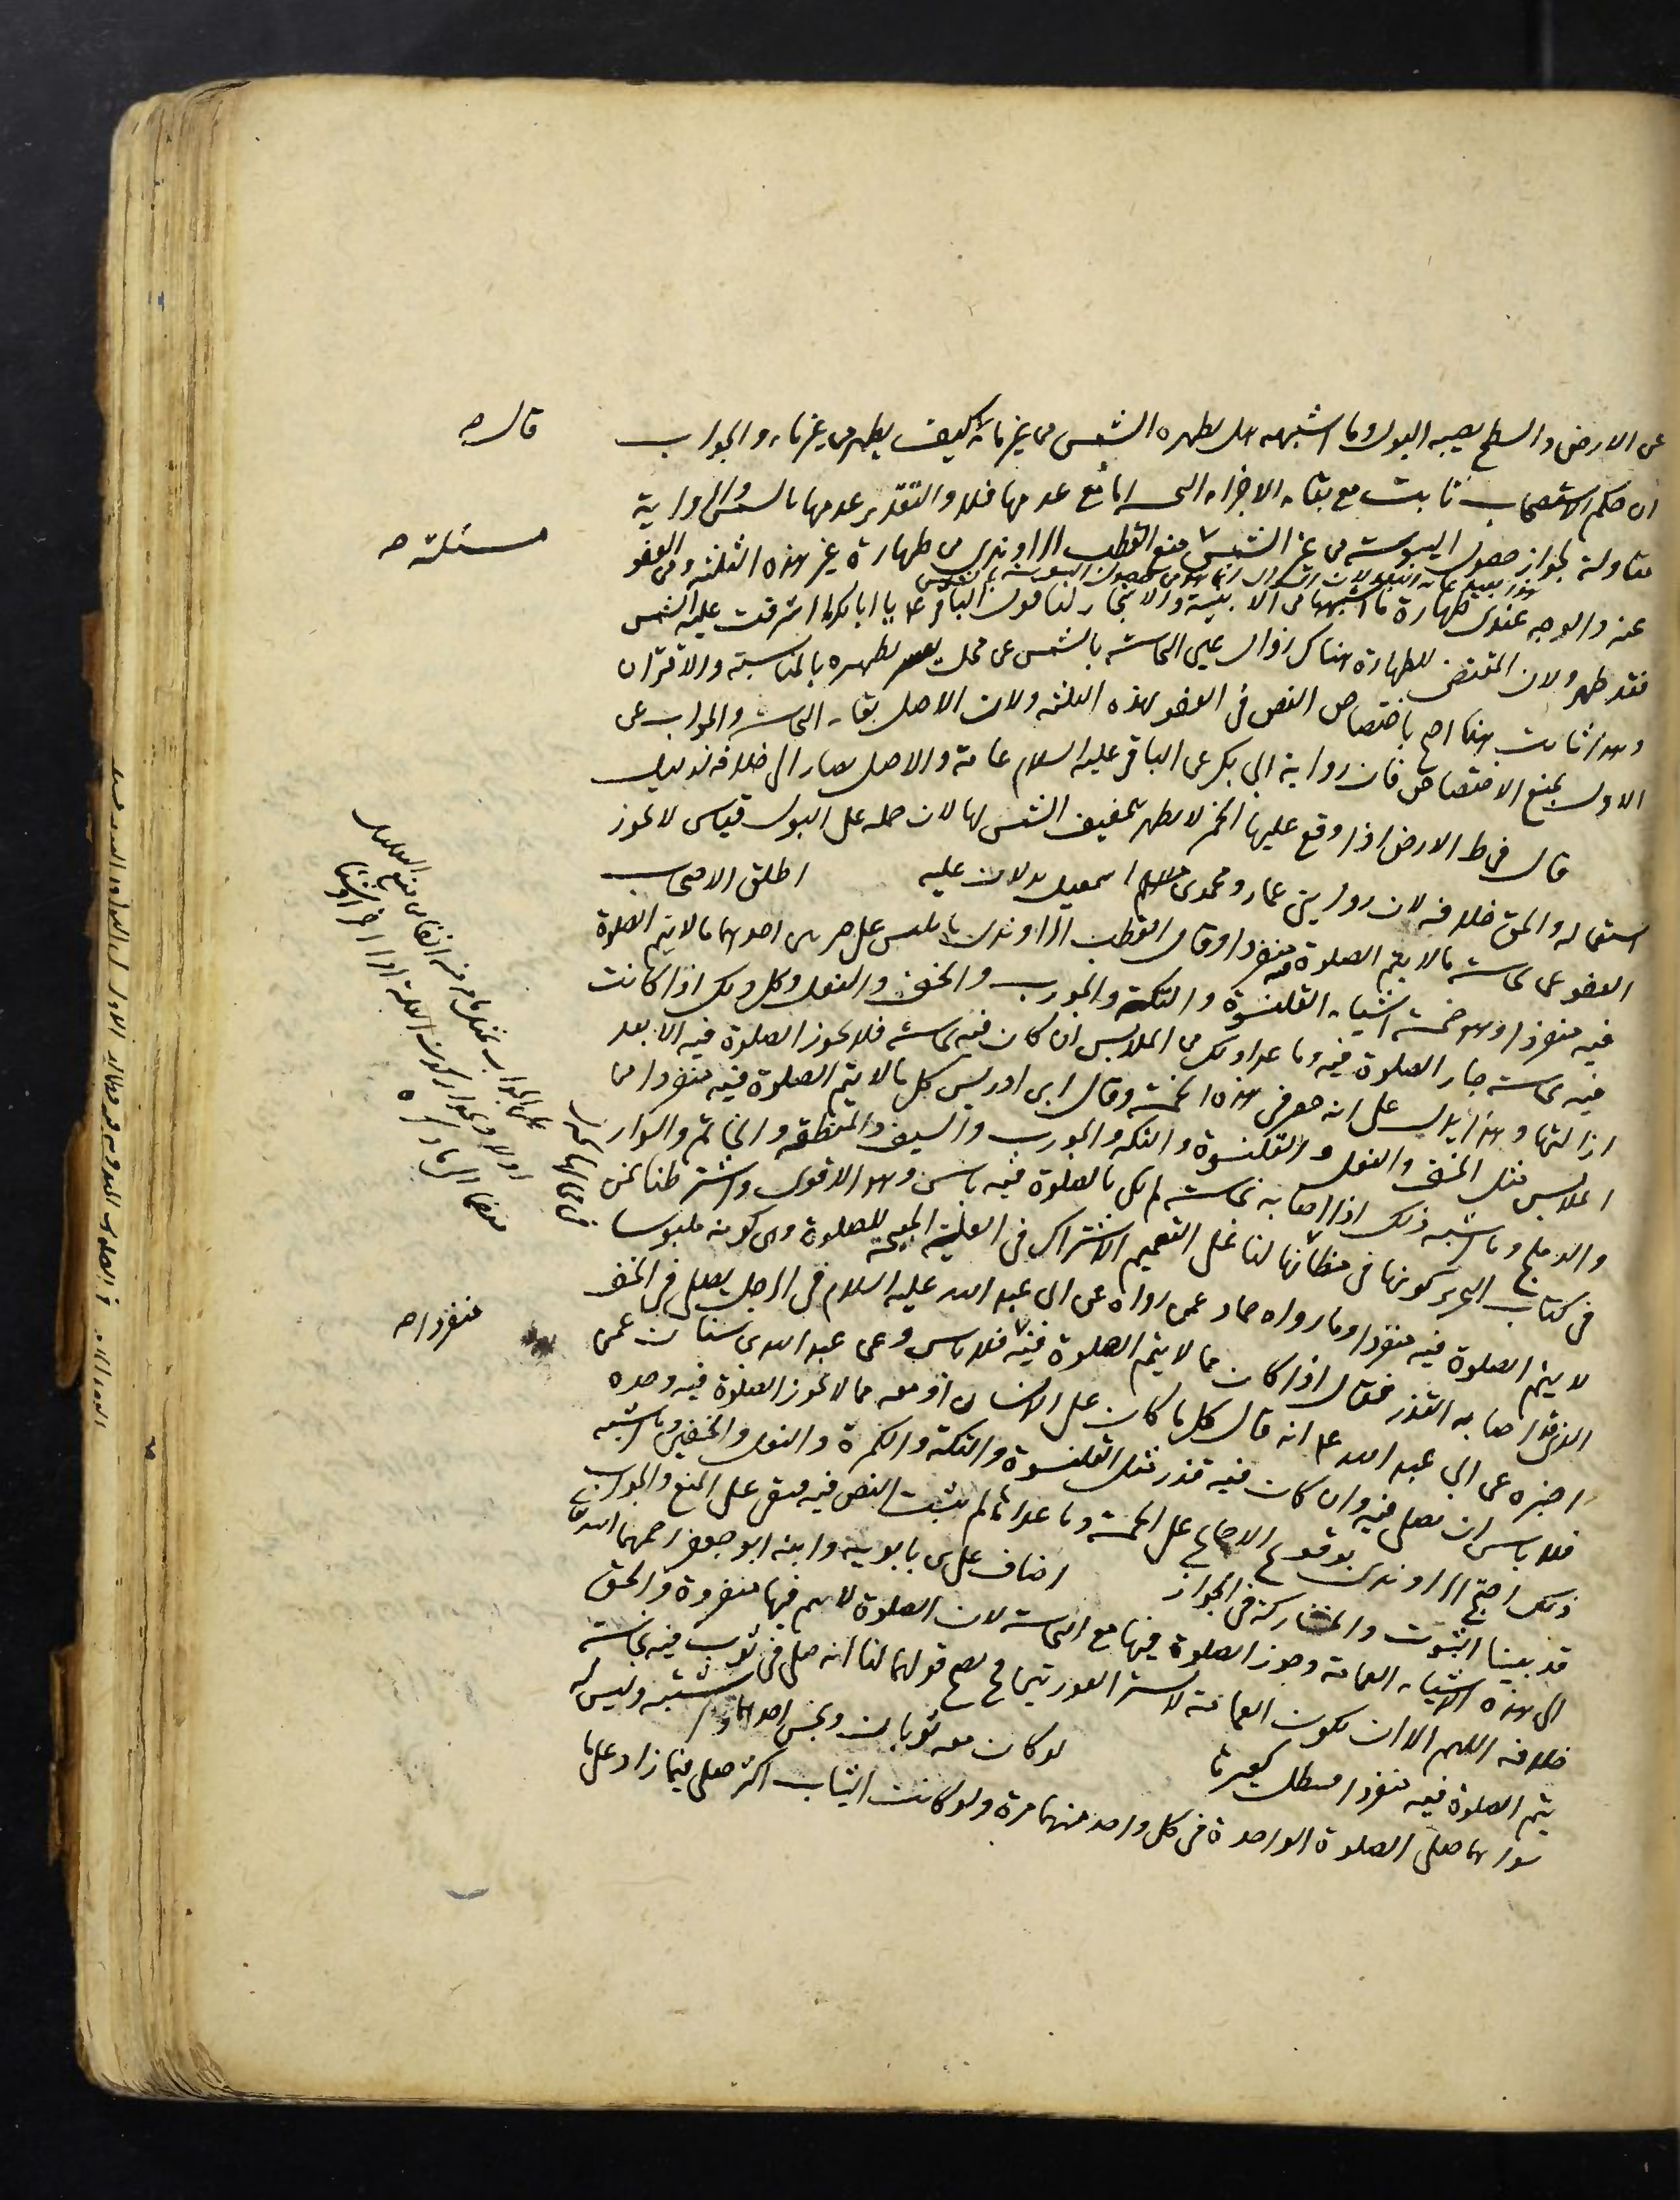 عن الارض والسطح يصيبه البول وما اشبهه هل يطهره الشمس من غير ماء قال كيف يطهر من غير ماء والجواب
ان حكم الاستصحاب ثابت مع بقاء الاجزاء النجسة اما مع عدمها فلا والتقدير عدمها بالشمس والرواية
متأولة لجواز حصول اليبوسة من غير الشمس منع القطب الراوندي من طهارة غير هذه الثلثة وهي
عنه والوجه عندي طهارة ما اشبهها من الابنية والاشجار لنا قول الباقر ع يا ابا بكر ما اشرقت عليه الشمس
فقد طهر ولان المقتضي للطهارة هناك زوال عين النجاسة بالشمس عن محلت بالمناسبة والاقتران
وهذا ثابت هنا احتج باختصاص النص في العفو لهذه الثلثة ولان الاصل بقاء النجاسة والجواب عن
الاول بمنع الاختصاص فان رواية ابي بكر عن الباقر عليه السلام عامة والاصل يصار الى خلافه لدليل
قال في ط الارض اذا وقع عليها الخمر لا يطهر بتجفيف الشمس لها لان حمله على البول قياس لا يجوز
استعماله والحق خلافه لان روايتي عمار ومحمد بن اسمعيل يدلان عليه اطلق الاصحاب
العفو عن نجاسة ما لا يتم الصلوة فيه منفردا وقال القطب الراوندي ما يلبس على ضربين احدهما ما لا يتم الصلوة
فيه منفردا وهو خمسة اشياء القلنسوة والتكة والجورب والخف والنعل وكل ذلك اذا كانت
فيه نجاسة جاز الصلوة فيه وما عدا ذلك من الملابس ان كان فيه نجاسة فلا يجوز الصلوة فيه الا بعد
ازالتها وهذا يدل على انه حصر في هذه الخمسة وقال ابن ادريس كل ما لا يتم الصلوة فيه منفردا من
الملابس مثل الخف والنعل والقلنسوة والتكة والجورب والسيف والمنطقة والخاتم والسوار
والدملج وما اشبه ذلك اذا اصابه نجاسة لم يكن بالصلوة فيه بأس وهو الاقوى واشترطنا نحن
في كتاب التحرير كونها في مظانها لنا على التعميم الاشتراك في العلة المبيحة للصلوة وهي كونه ملبوسا
لا يتم الصلوة فيه منفردا وما رواه حماد عمن رواه عن ابي عبد الله عليه السلام في الرجل يصلي في الخف
الذي قد اصابه القذر فقال اذا كان مما لا يتم الصلوة فيه فلا بأس وعن عبد الله بن سنان عمن
اخبره عن ابي عبد الله ع انه قال كل ما كان على الانسان او معه مما لا يجوز الصلوة فيه وحده
فلا بأس ان يصلي فيه وان كان فيه قذر مثل القلنسوة والتكة والكمرة والنعل والخفين وما اشبه
ذلك احتج الراوندي بوقوع الاجماع على الخمسة وما عداها لم يثبت النص فيه فيبقى على المنع والجواب
قد بينا الثبوت والمشاركة في الجواز اضاف علي بن بابويه وابنه ابو جعفر رحمهما الله
الى هذه الاشياء العمامة وجوز الصلوة فيها مع النجاسة لان الصلوة لا يتم فيها منفردة والحق
خلافه اللهم الا ان يكون العمامة لا يستر العورتين فح يصح قولهما لنا انه صلى في ثوب فيه نجاسة
يتم الصلوة فيه منفردا فيبطل كغيرها لو كان معه ثوبان ونجس احدهما واشتبه وليس له
سواهما صلى الصلوة الواحدة في كل واحد منهما مرة ولو كانت الثياب اكثر صلى فيما زاد على ما
قال ص
مسئلة ص
منفردا ص